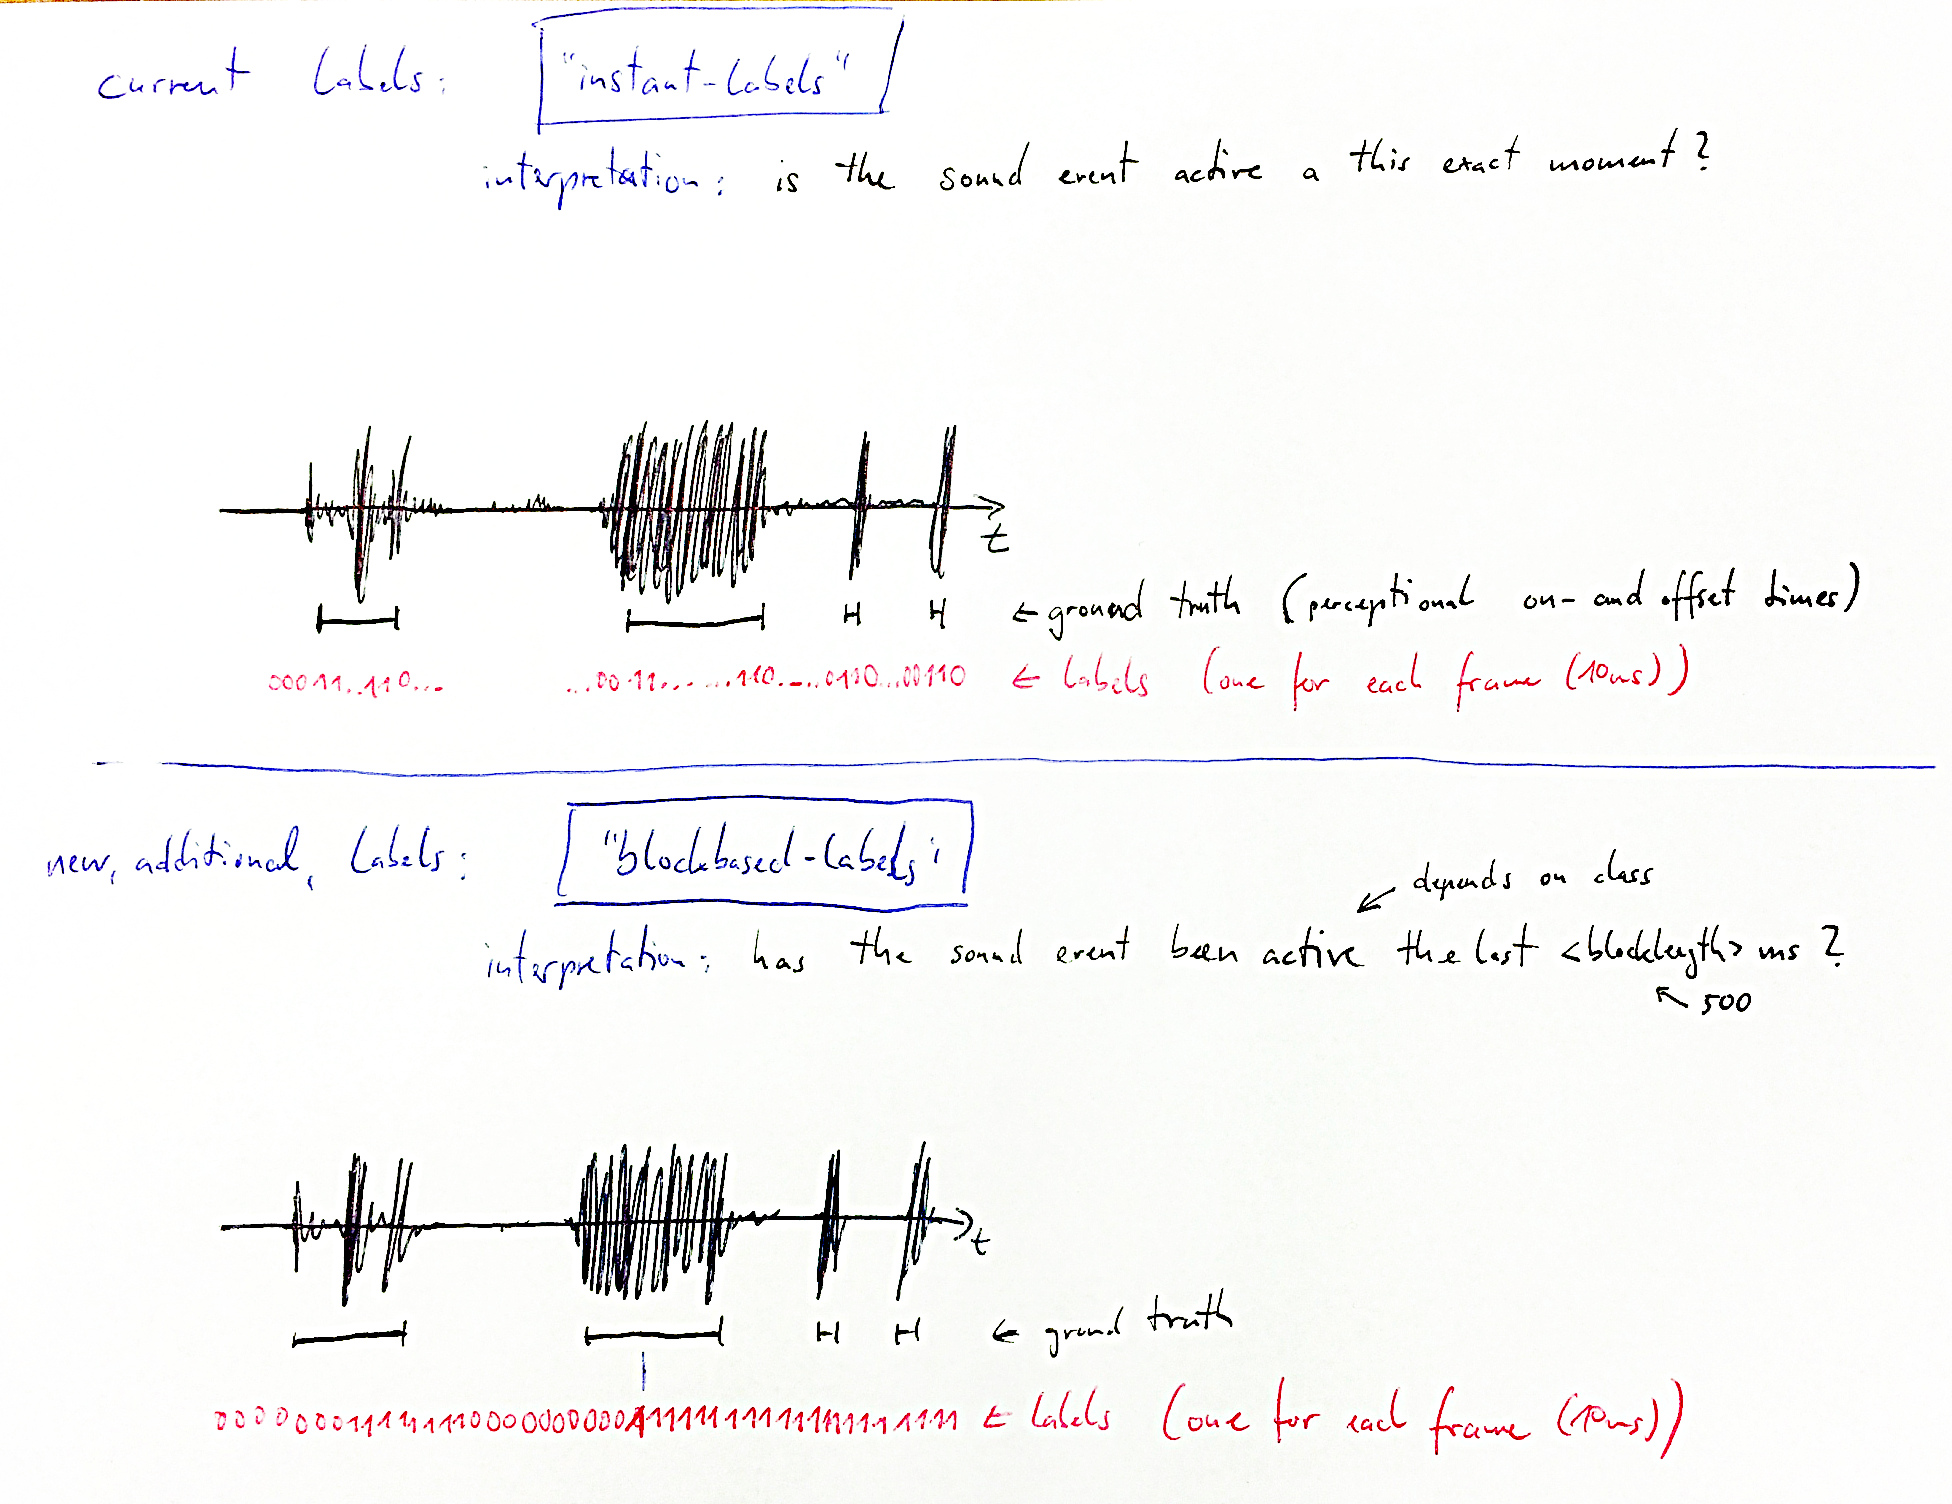 current labels: "instant-labels"
interpretation: is the sound event active a this exact moment?
t
← ground truth (perceptional on- and offset times)
00011..110... ...0011... ...110.-..0110...00110 ← labels (one for each frame (10ms))
new, additional, labels: "blockbased-labels"
depends on class
interpretation: has the sound event been active the last <blocklength> ms?
500
t
← ground truth
← labels (one for each frame (10ms))